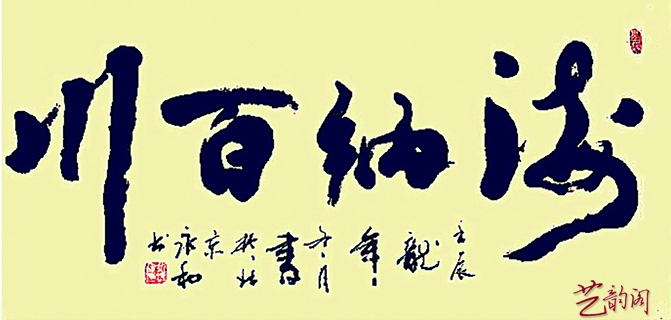 海纳百川
壬辰
龍年
冬月
書於北
京
永和
书
艺韵阁